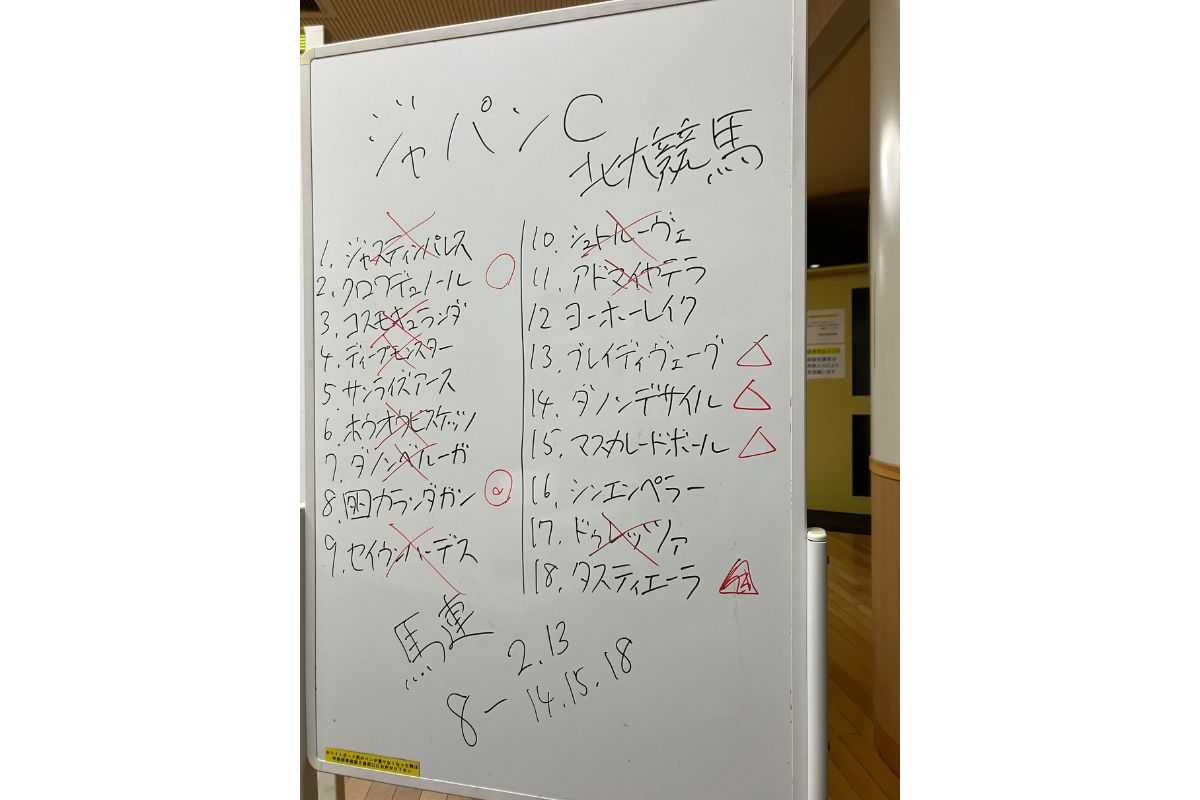 ジャパンC
北大競馬
1. ジャスティンパレス
2. クロワデュノール ○
3. コスモキュランダ
4. ディープモンスター
5. サンライズアース
6. ホウオウビスケッツ
7. ダノンベルーガ
8. 囲カランダガン ◎
9. セイウンハーデス
10. シュトルーヴェ
11. アドマイヤテラ
12 ヨーホーレイク
13. ブレイディヴェーグ △
14. ダノンデサイル △
15. マスカレードボール △
16. シンエンペラー
17. ドゥレッツァ
18. タスティエーラ ▲
馬連
2.13
8－14.15.18
ホワイトボード用のペンが書けなくなった際は